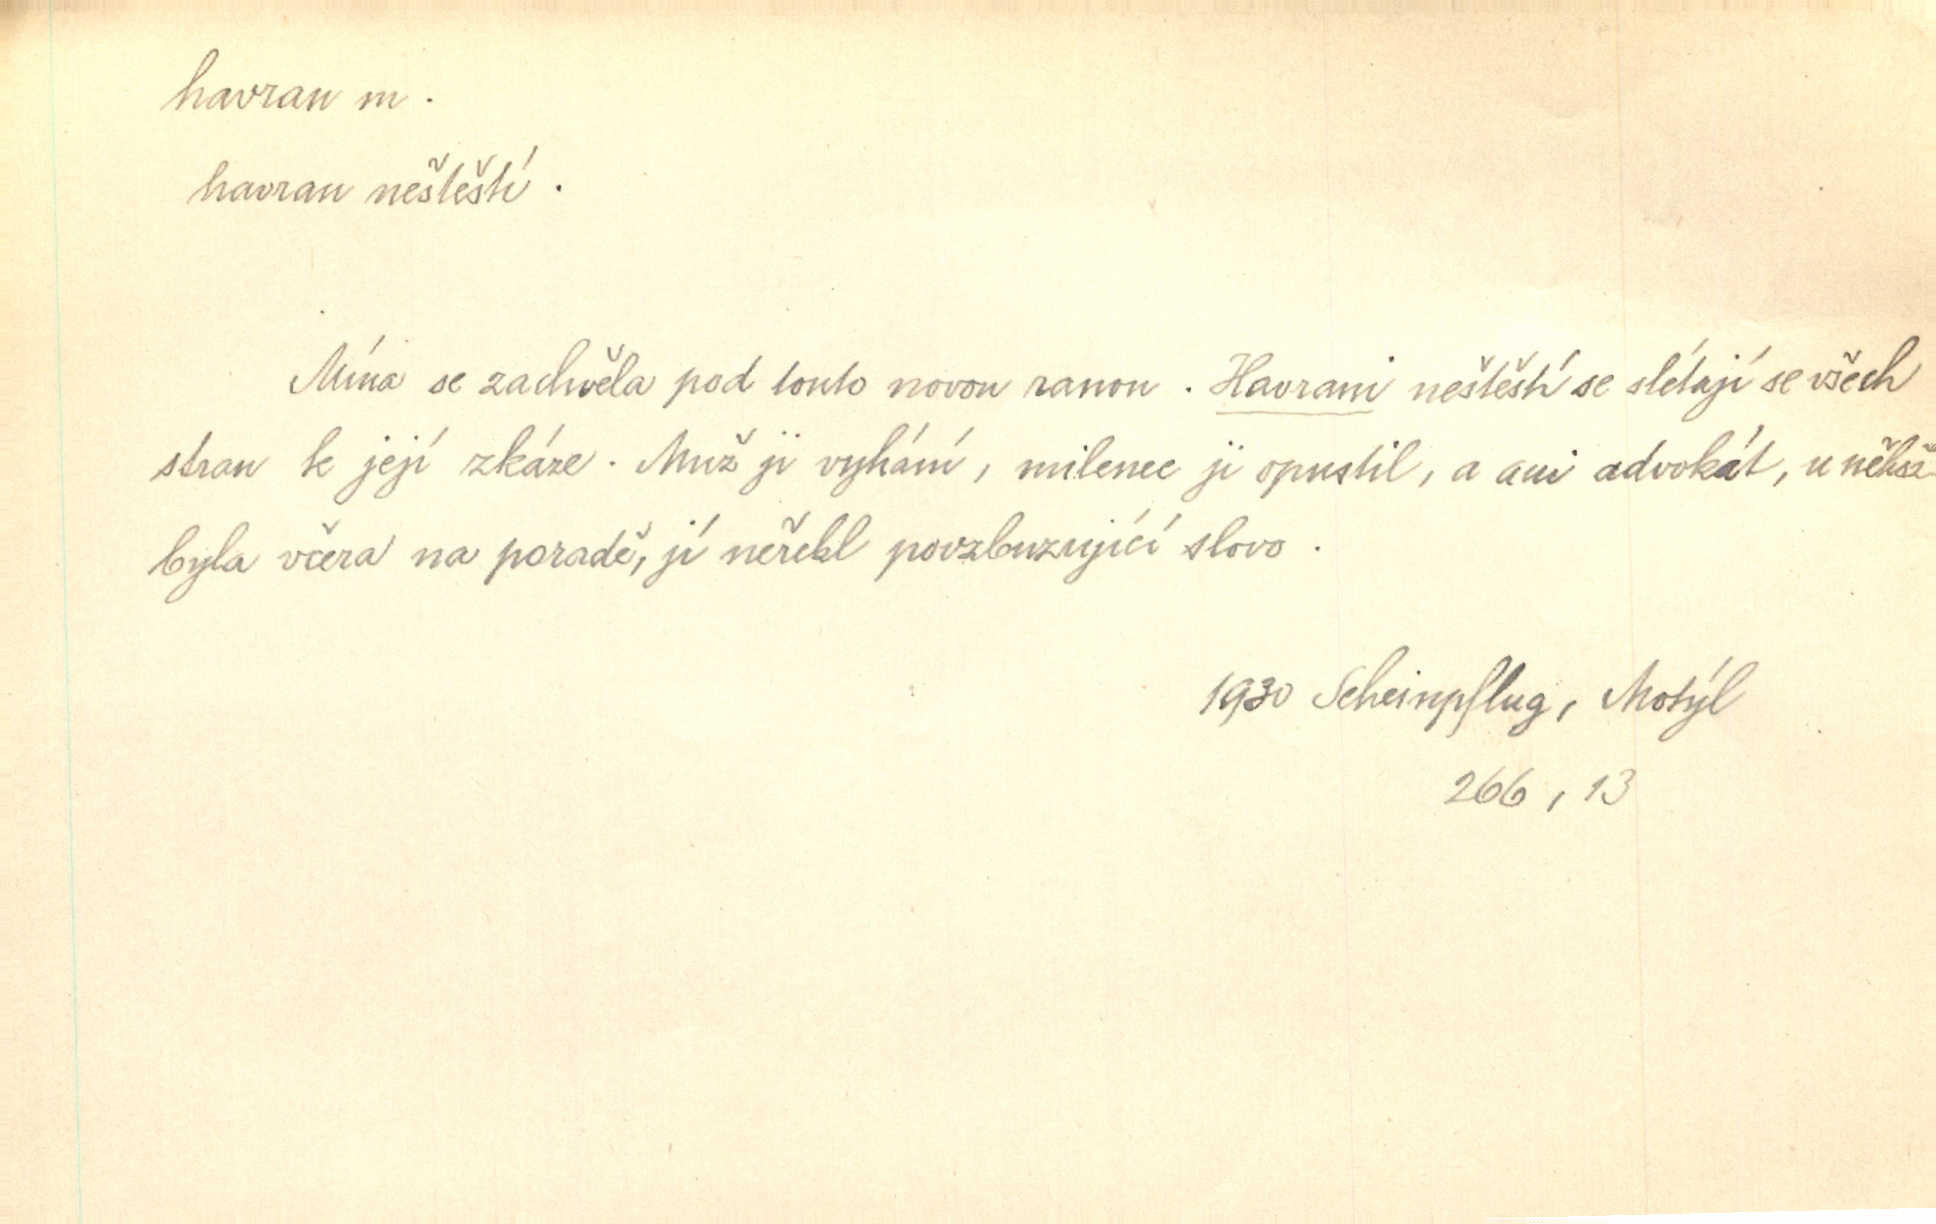 havran m.
havran neštěstí.
Mína se zachvěla pod touto novou ranou. Havrani neštěstí se slétají se všech
stran k její zkáze. Muž ji vyhání, milenec ji opustil, a ani advokát, u něhož
byla včera na poradě, jí neřekl povzbuzující slovo.
1930 Scheinpflug, Motýl
266, 13